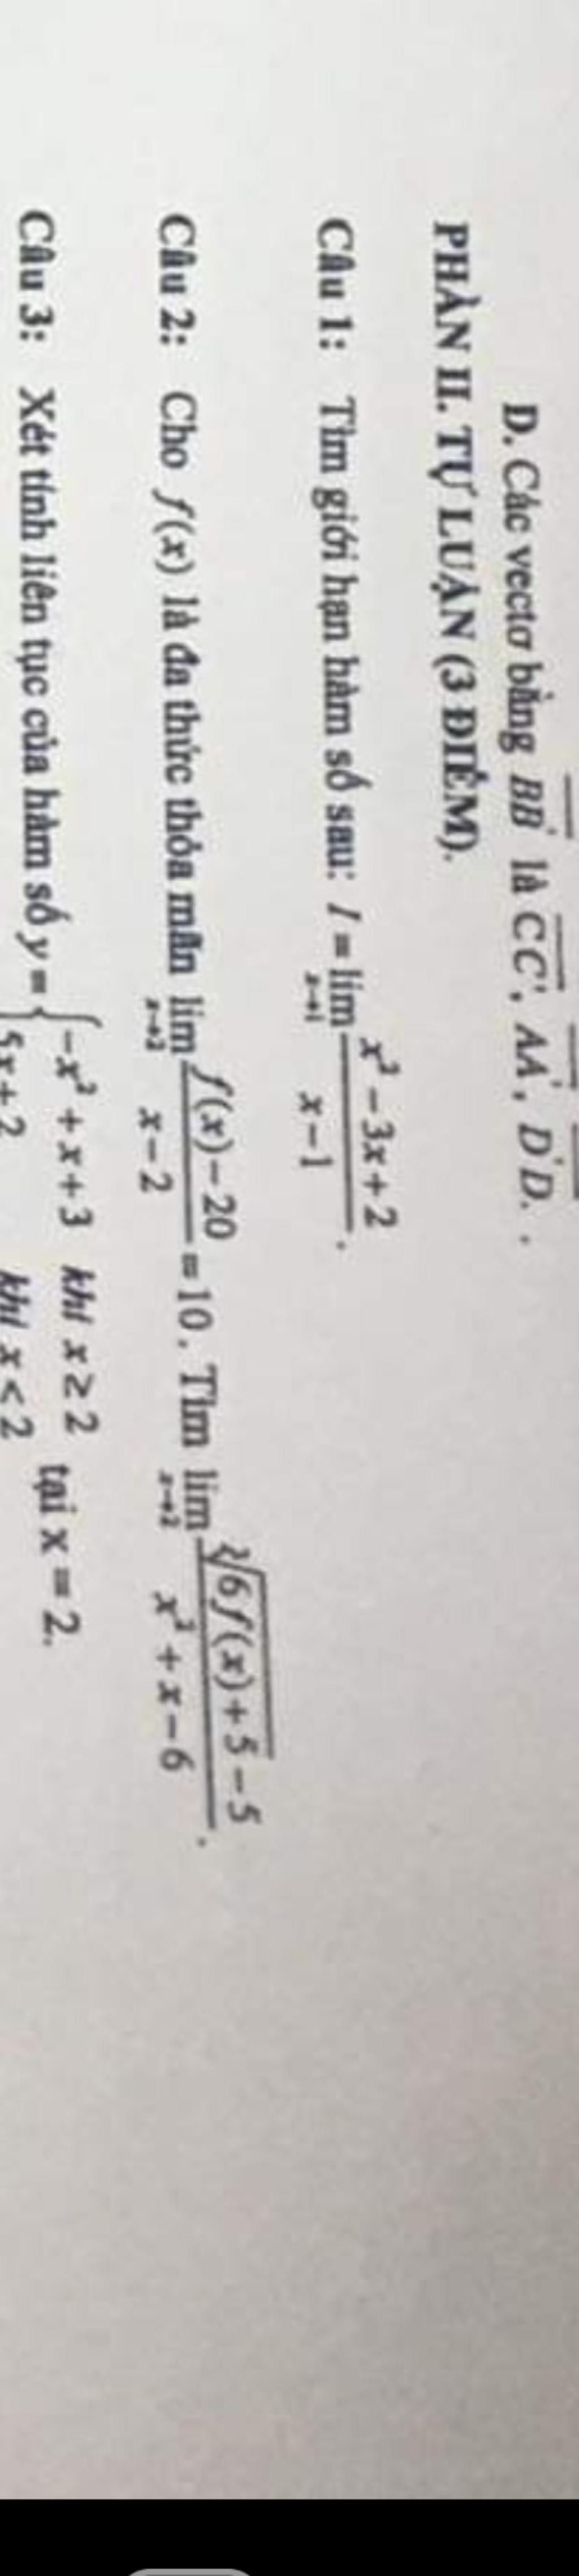 D. Các vectơ bằng BB' là CC', AA', D'D. .
PHẦN II. TỰ LUẬN (3 ĐIỂM).
Câu 1: Tìm giới hạn hàm số sau: I = lim x→1 (x² − 3x + 2)/(x − 1).
Câu 2: Cho f(x) là đa thức thỏa mãn lim x→2 (f(x) − 20)/(x − 2) = 10. Tìm lim x→2 (∛(6f(x) + 5) − 5)/(x² + x − 6).
Câu 3: Xét tính liên tục của hàm số y = { −x² + x + 3 khi x ≥ 2
5x + 2 khi x < 2 tại x = 2.